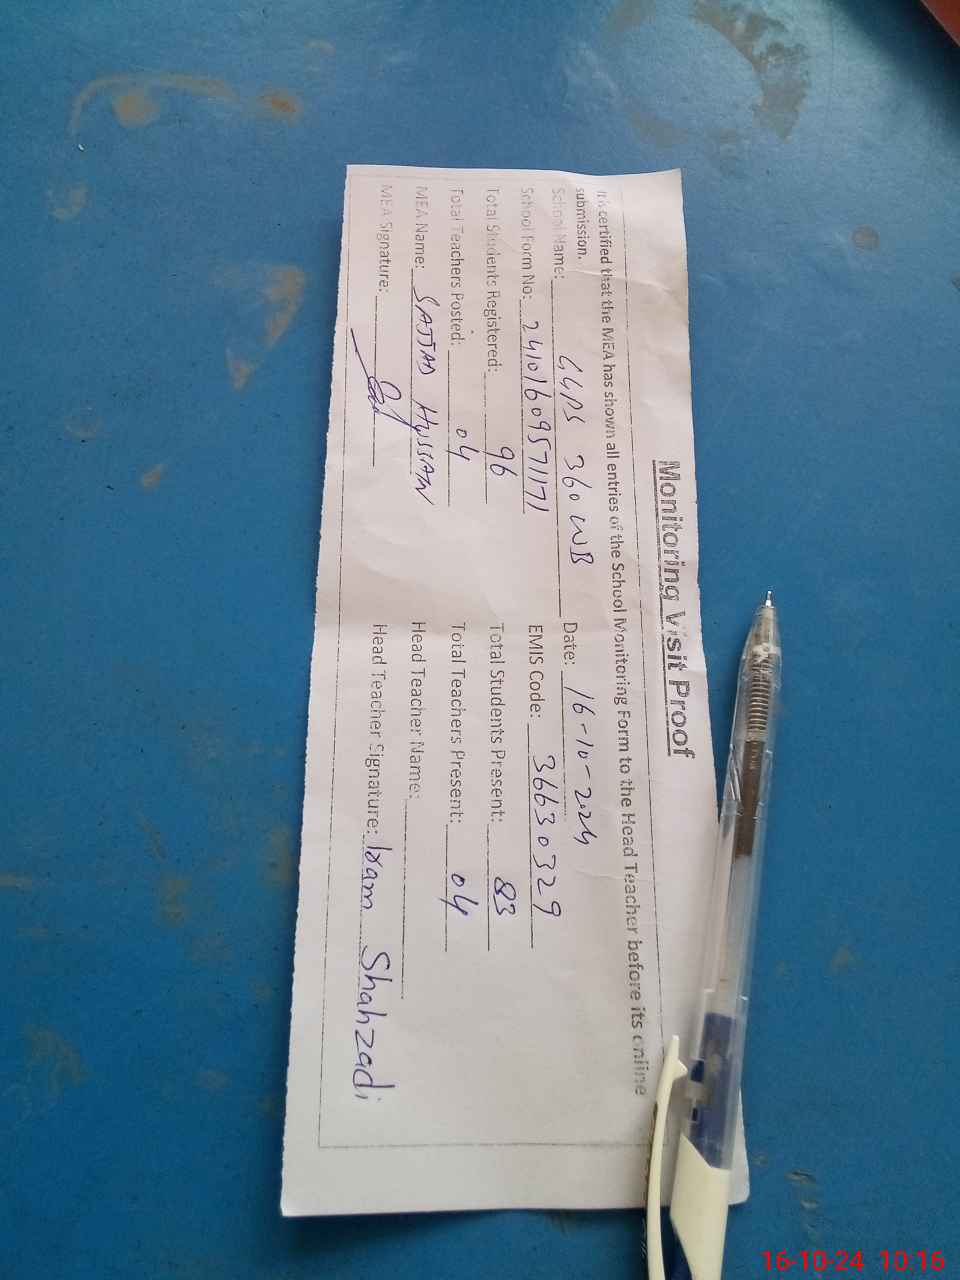 Monitoring Visit Proof
It is certified that the MEA has shown all entries of the School Monitoring Form to the Head Teacher before its online
submission.
School Name: GGPS 360 WB Date: 16-10-2024
School Form No: 24101609571171 EMIS Code: 36630329
Total Students Registered: 96 Total Students Present: 83
Total Teachers Posted: 04 Total Teachers Present: 04
MEA Name: SAJJAD HUSSAIN Head Teacher Name:
MEA Signature: Head Teacher Signature: Iram Shahzadi
16-10-24 10:16